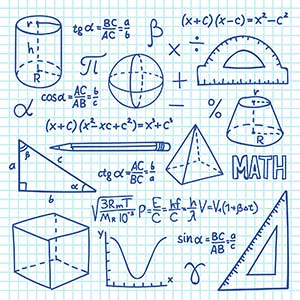 r
h
R
tg α = BC/AC = a/b
β
(x+C) (x-C) = x²-C²
×
+
-
%
π
α
cos α = AC/AB = b/c
r
R
(x+C) (x²-xc+c²) = x³+c³
β
a
c
α
b
ctg α = AC/BC = b/a
MATH
√3RmT/MR10⁻³
P = E/C = hf/C = h/λ
V = V₀(1+βΔt)
y
x
sin α = BC/AB = a/c
γ